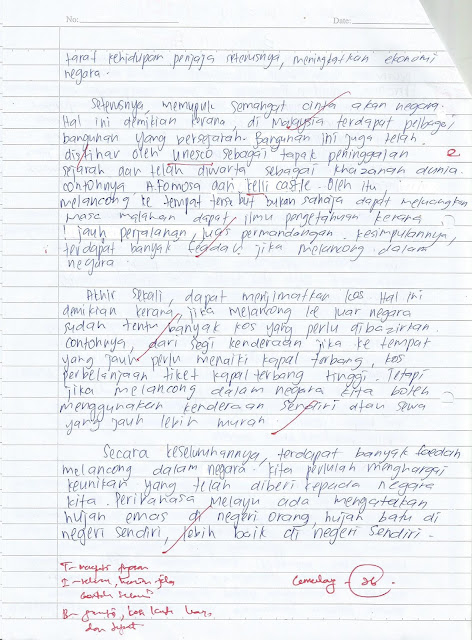 No: Date:
taraf kehidupan penjaja seterusnya, meningkatkan ekonomi
negara.
Seterusnya, memupuk semangat cinta akan negara.
Hal ini demikian kerana di Malaysia terdapat pelbagai
bangunan yang bersejarah. Bangunan ini juga telah
disifhar oleh unesco sebagai tapak peninggalan
sejarah dan telah diwarta sebagai khazanah dunia.
contohnya A.Fomosa dan kelli castle. Oleh itu,
melancong ke tempat tersebut bukan sahaja dapat meluangkan
masa malahan dapat ilmu pengetahuan kerana
! jauh perjalanan, luas permandangan. kesimpulannya,
terdapat banyak faedah jika melancong dalam
negara.
Akhir sekali, dapat menjimatkan kos. Hal ini
demikian kerana, jika melancong ke luar negara
sudah tentu banyak kos yang perlu dibazirkan.
contohnya, dari segi kenderaan jika ke tempat
yang jauh perlu menaiki kapal terbang, kos
perbelanjaan tiket kapal terbang tinggi. Tetapi
jika melancong dalam negara kita boleh
menggunakan kenderaan sendiri atau sewa
yang jauh lebih murah
Secara keseluruhannya, terdapat banyak faedah
melancong dalam negara. kita perlulah menghargai
keunikan yang telah diberi kepada negara
kita. Peribahasa Melayu ada mengatakan
hujan emas di negeri orang, hujan batu di
negeri sendiri, lebih baik di negeri sendiri.
Cemerlang - 26